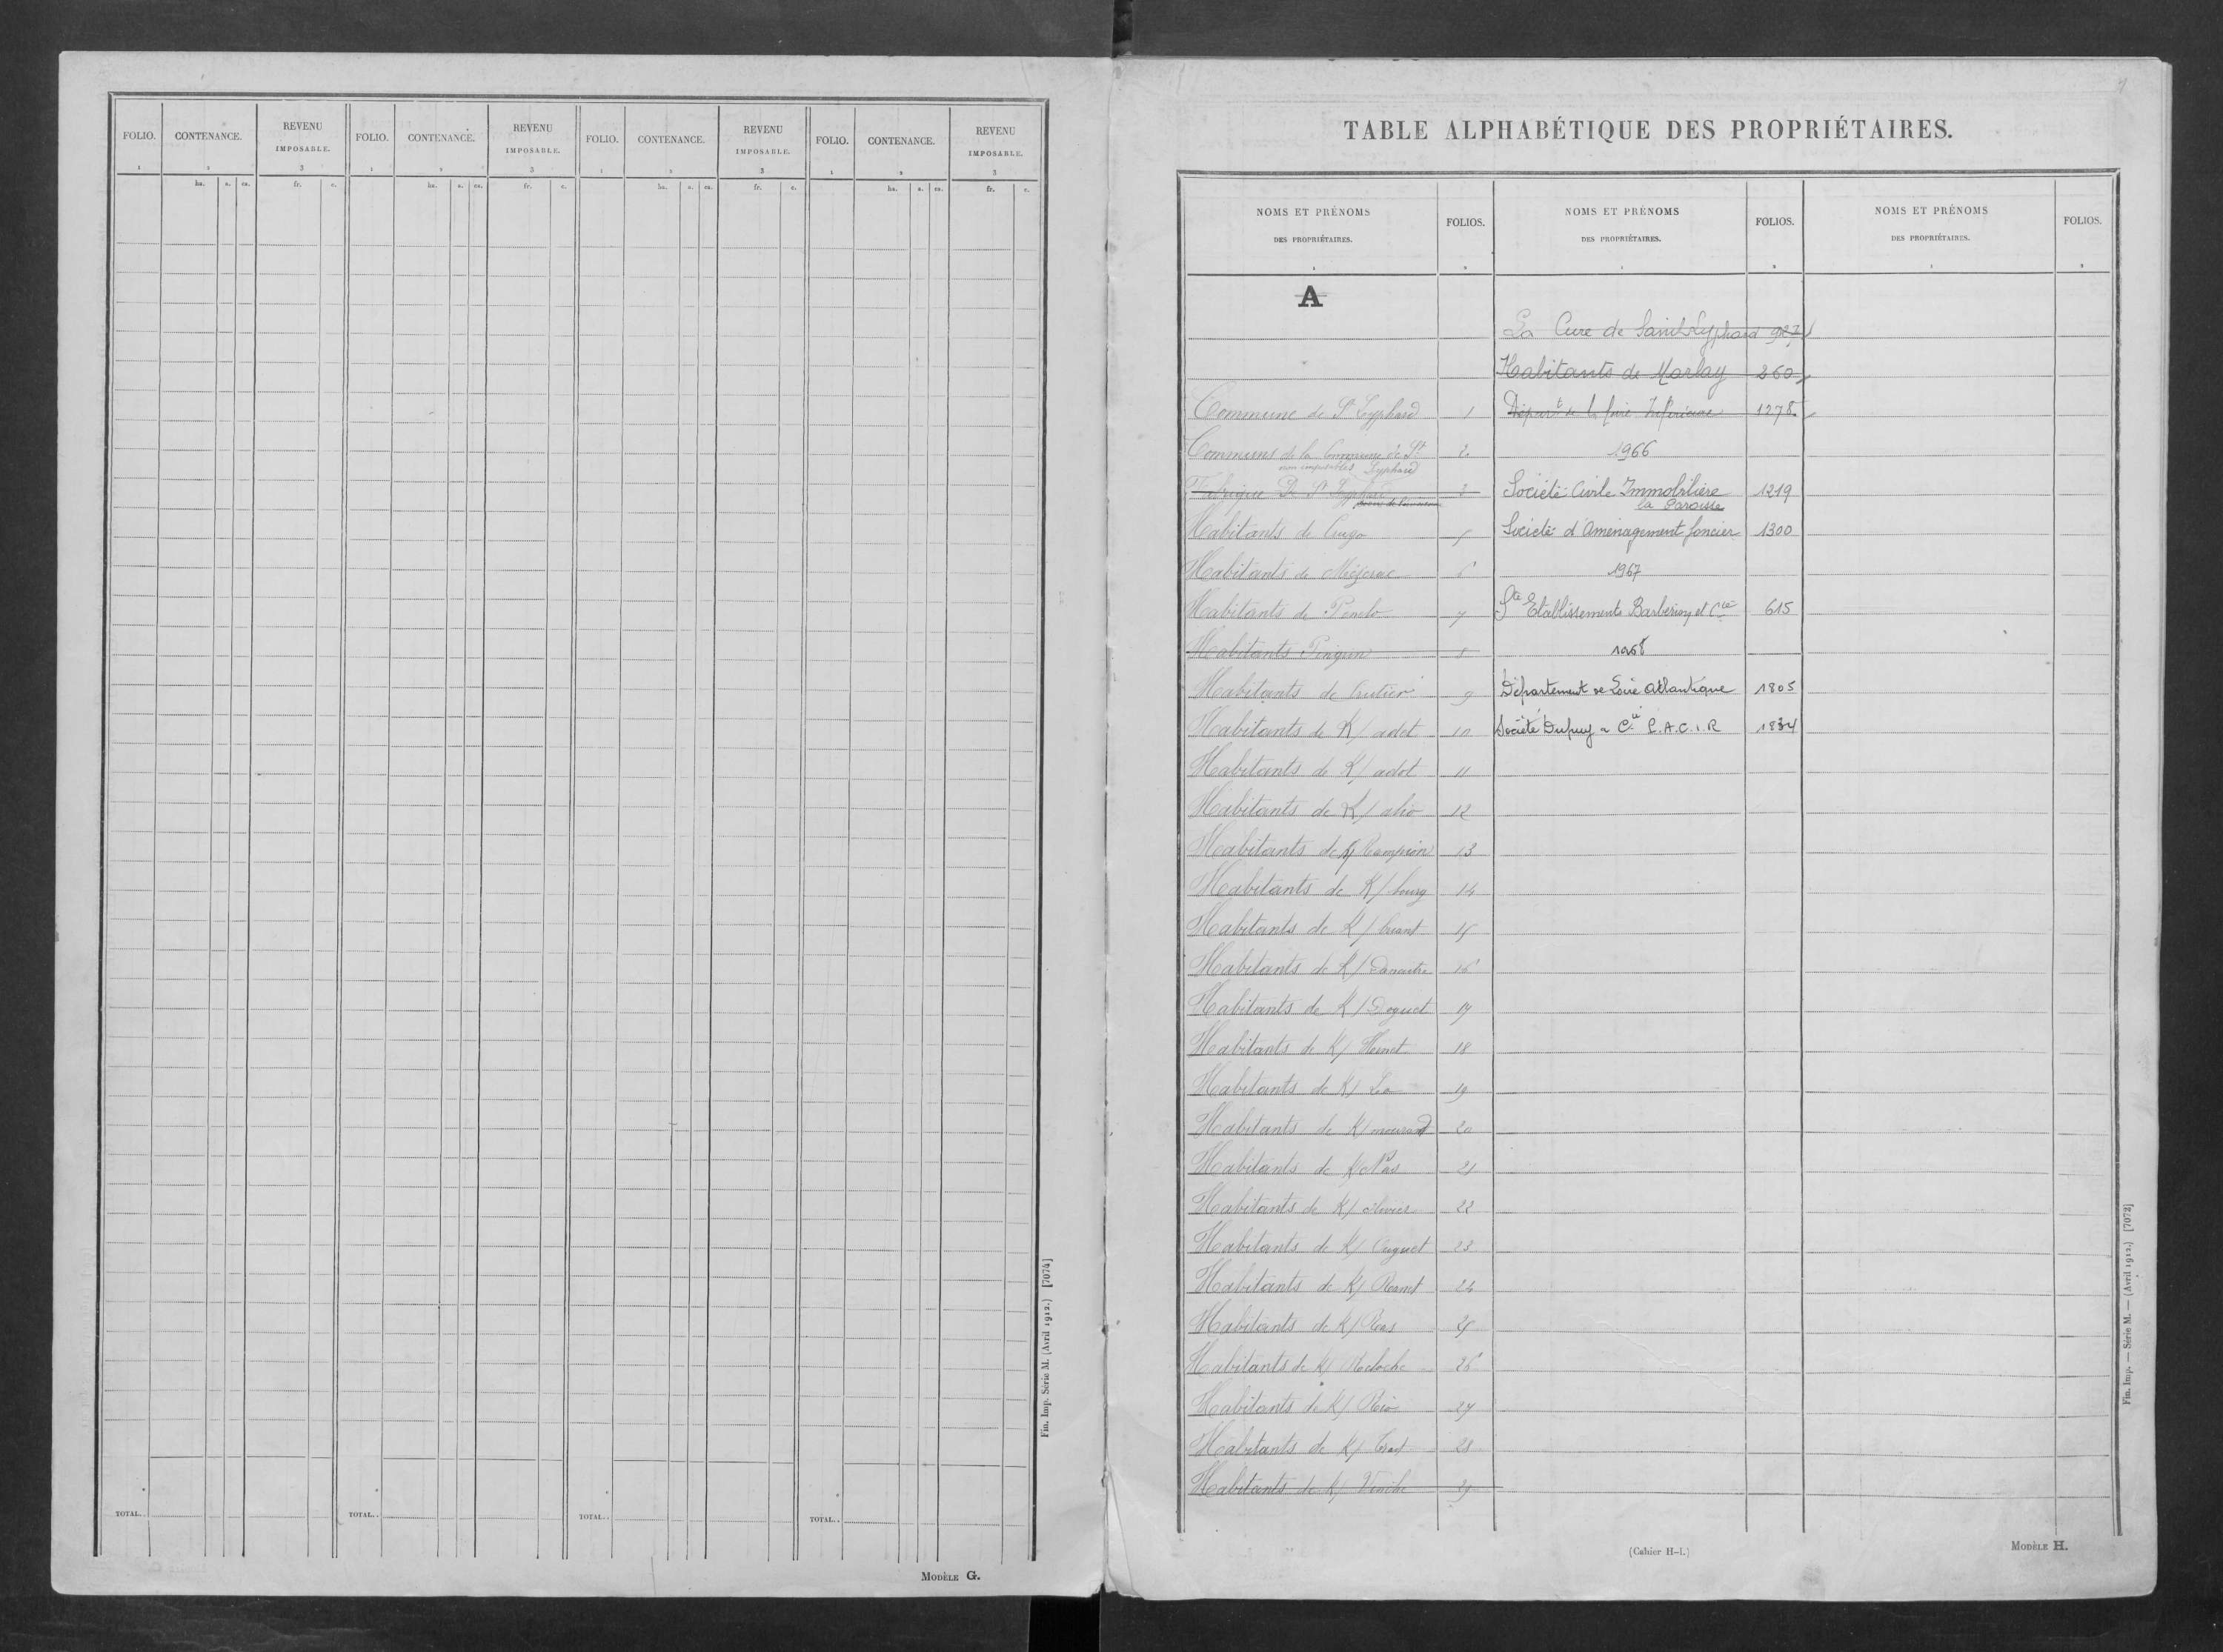 FOLIO. CONTENANCE. REVENU IMPOSABLE. FOLIO. CONTENANCE. REVENU IMPOSABLE. FOLIO. CONTENANCE. REVENU IMPOSABLE. FOLIO. CONTENANCE. REVENU IMPOSABLE.
1 2 3 1 2 3 1 2 3 1 2 3
ha. a. ca. fr. c. ha. a. ca. fr. c. ha. a. ca. fr. c. ha. a. ca. fr. c.
TOTAL.. TOTAL.. TOTAL.. TOTAL..
Fin. Imp. Série M. (Avril 1912.) [7074]
MODÈLE G.
TABLE ALPHABÉTIQUE DES PROPRIÉTAIRES.
NOMS ET PRÉNOMS DES PROPRIÉTAIRES. FOLIOS. NOMS ET PRÉNOMS DES PROPRIÉTAIRES. FOLIOS. NOMS ET PRÉNOMS DES PROPRIÉTAIRES. FOLIOS.
1 2 1 2 1 2
A
Commune de St Lyphard 1
Communs de la Commune de St Lyphard 2
non imposables
Fabrique De St Lyphard 3
Habitants de Crugo 5
Habitants de Mézerac 6
Habitants de Penelo 7
Habitants 8
Habitants de 9
Habitants de K/ adet 10
Habitants de K/ adot 11
Habitants de K/ alio 12
Habitants de K/ Campion 13
Habitants de K/ bourg 14
Habitants de K/ briant 15
Habitants de K/ 16
Habitants de K/ Doguet 17
Habitants de K/ Hernet 18
Habitants de K/ Lo 19
Habitants de K/ mourand 20
Habitants de K/ Nas 21
Habitants de K/ olivier 22
Habitants de K/ Ouguet 23
Habitants de K/ 24
Habitants de K/ Ros 25
Habitants de K/ Roloche 26
Habitants de K/ Rio 27
Habitants de K/ 28
Habitants de K/ 29
La Cure de Saint Lyphard 927
Habitants de Marlay 260
Départt de la Loire Inférieure 1278
1966
Société Civile Immobilière 1219
la Paroisse
Société d'Aménagement foncier 1300
1967
Sté Etablissements et Cie 615
1968
Département de Loire Atlantique 1805
Société Dupuy & Cie 1834
(Cahier H-1.)
MODÈLE H.
Fin. Imp. — Série M. — (Avril 1912.) [7072]